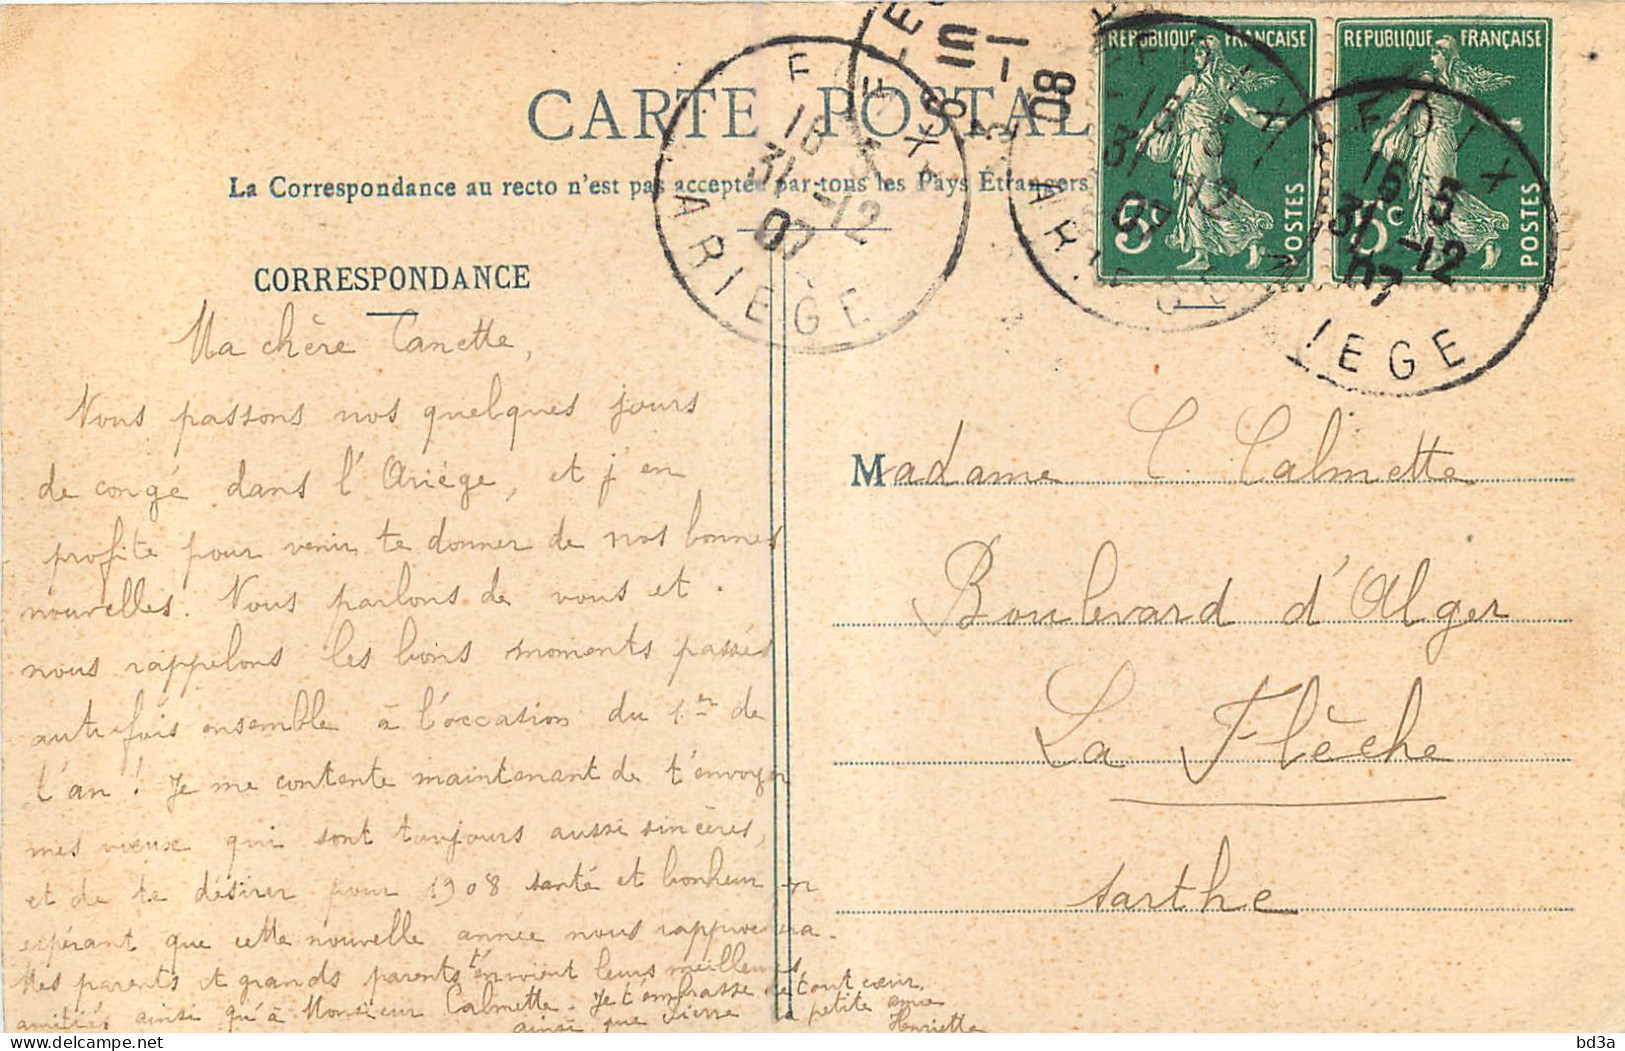 CARTE POSTAL
La Correspondance au recto n'est pas acceptée par tous les Pays Étrangers
CORRESPONDANCE
RÉPUBLIQUE FRANÇAISE
5c
POSTES
RÉPUBLIQUE FRANÇAISE
5c
POSTES
F
16
31-12
07
ARIEGE
08
FOIX
16 5
31-12
07
FOIX
16 5
31-12
07
IEGE
Ma chère Tanette,
Nous passons nos quelques jours
de congé dans l'Ariége, et j'en
profite pour venir te donner de nos bonnes
nouvelles. Nous parlons de vous et
nous rappelons les bons moments passés
autrefois ensemble à l'occasion du 1.er de
l'an! Je me contente maintenant de t'envoyer
mes vœux qui sont toujours aussi sincères,
et de te désirer pour 1908 santé et bonheur en
espérant que cette nouvelle année nous rapprochera.
Mes parents et grands parents t'envoient leurs meilleures
amitiés ainsi qu'à Monsieur Calmette. Je t'embrasse de tout cœur,
ainsi que Pierre ta petite amie
Henriette
Madame C. Calmette
Boulevard d'Alger
La Flèche
Sarthe
bd3a